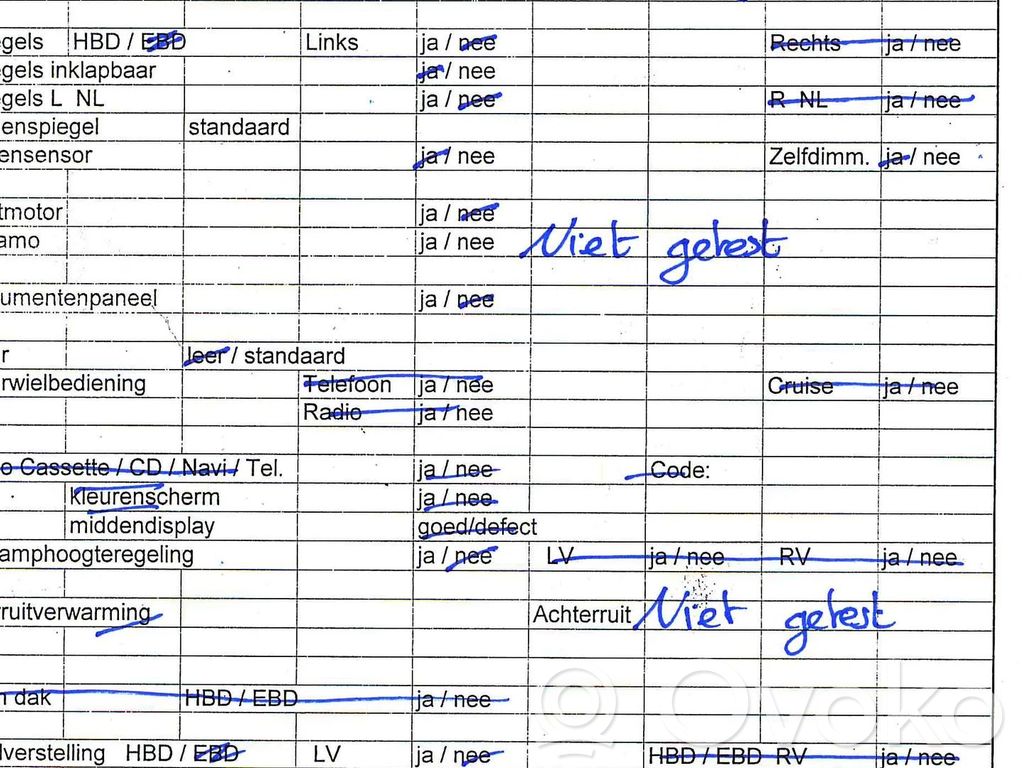 egels HBD / EBD Links ja / nee Rechts ja / nee
egels inklapbaar ja / nee
egels L NL ja / nee R NL ja / nee
enspiegel standaard
ensensor ja / nee Zelfdimm. ja / nee
tmotor ja / nee
amo ja / nee Niet getest
umentenpaneel ja / nee
r leer / standaard
rwielbediening Telefoon ja / nee Cruise ja / nee
Radio ja / nee
o Cassette / CD / Navi / Tel. ja / nee Code:
kleurenscherm ja / nee
middendisplay goed/defect
amphoogteregeling ja / nee LV ja / nee RV ja / nee
ruitverwarming Achterruit Niet getest
n dak HBD / EBD ja / nee
lverstelling HBD / EBD LV ja / nee HBD / EBD RV ja / nee
Ovoko